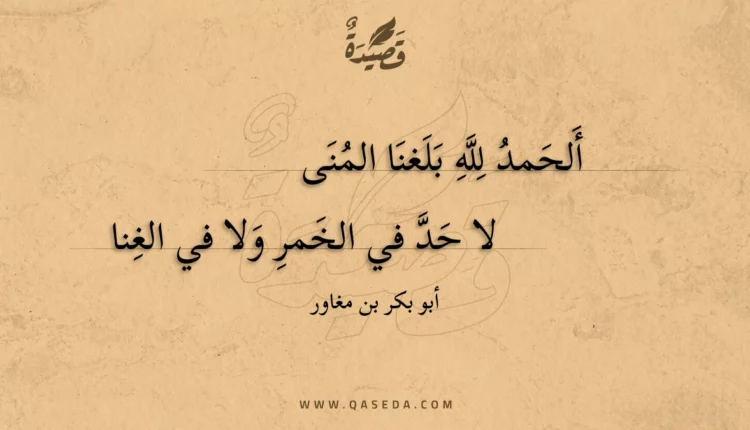 قَصِيْدَةٌ
أَلحَمدُ لِلَّهِ بَلَغنَا المُنَى
لا حَدَّ في الخَمرِ وَلا في الغِنا
أبو بكر بن مغاور
WWW.QASEDA.COM